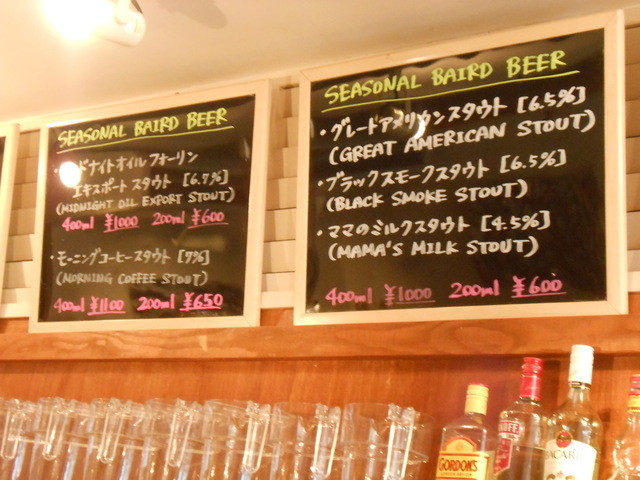 SEASONAL BAIRD BEER
ドナイトオイル フォーリン
エキスポート スタウト [6.7%]
(MIDNIGHT OIL EXPORT STOUT)
400ml ¥1000 200ml ¥600
・モーニングコーヒースタウト [7%]
(MORNING COFFEE STOUT)
400ml ¥1100 200ml ¥650
SEASONAL BAIRD BEER
・グレートアメリカンスタウト [6.5%]
(GREAT AMERICAN STOUT)
・ブラックスモークスタウト [6.5%]
(BLACK SMOKE STOUT)
・ママのミルクスタウト [4.5%]
(MAMA'S MILK STOUT)
400ml ¥1000 200ml ¥600
GORDON'S
BACARDI